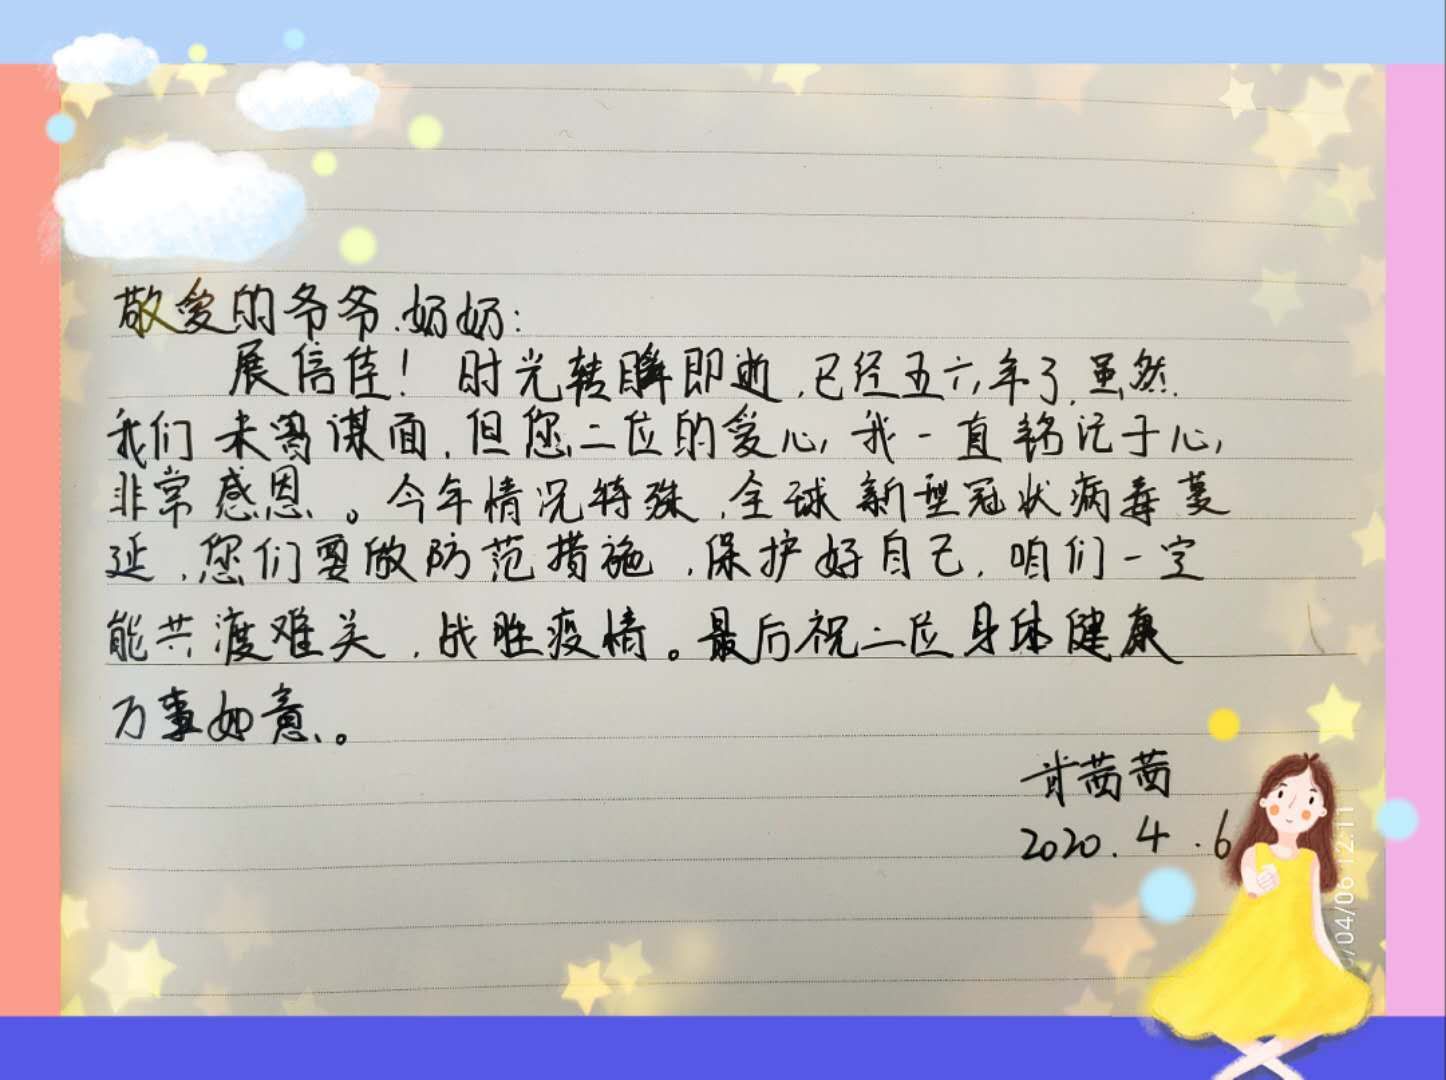 敬爱的爷爷、奶奶：
展信佳！时光转瞬即逝，已经五六年了，虽然
我们未曾谋面，但您二位的爱心，我一直铭记于心，
非常感恩。今年情况特殊，全球新型冠状病毒蔓
延，您们要做防范措施，保护好自己，咱们一定
能共渡难关，战胜疫情。最后祝二位身体健康
万事如意。
甘茜茜
2020.4.6
/04/06 12:11